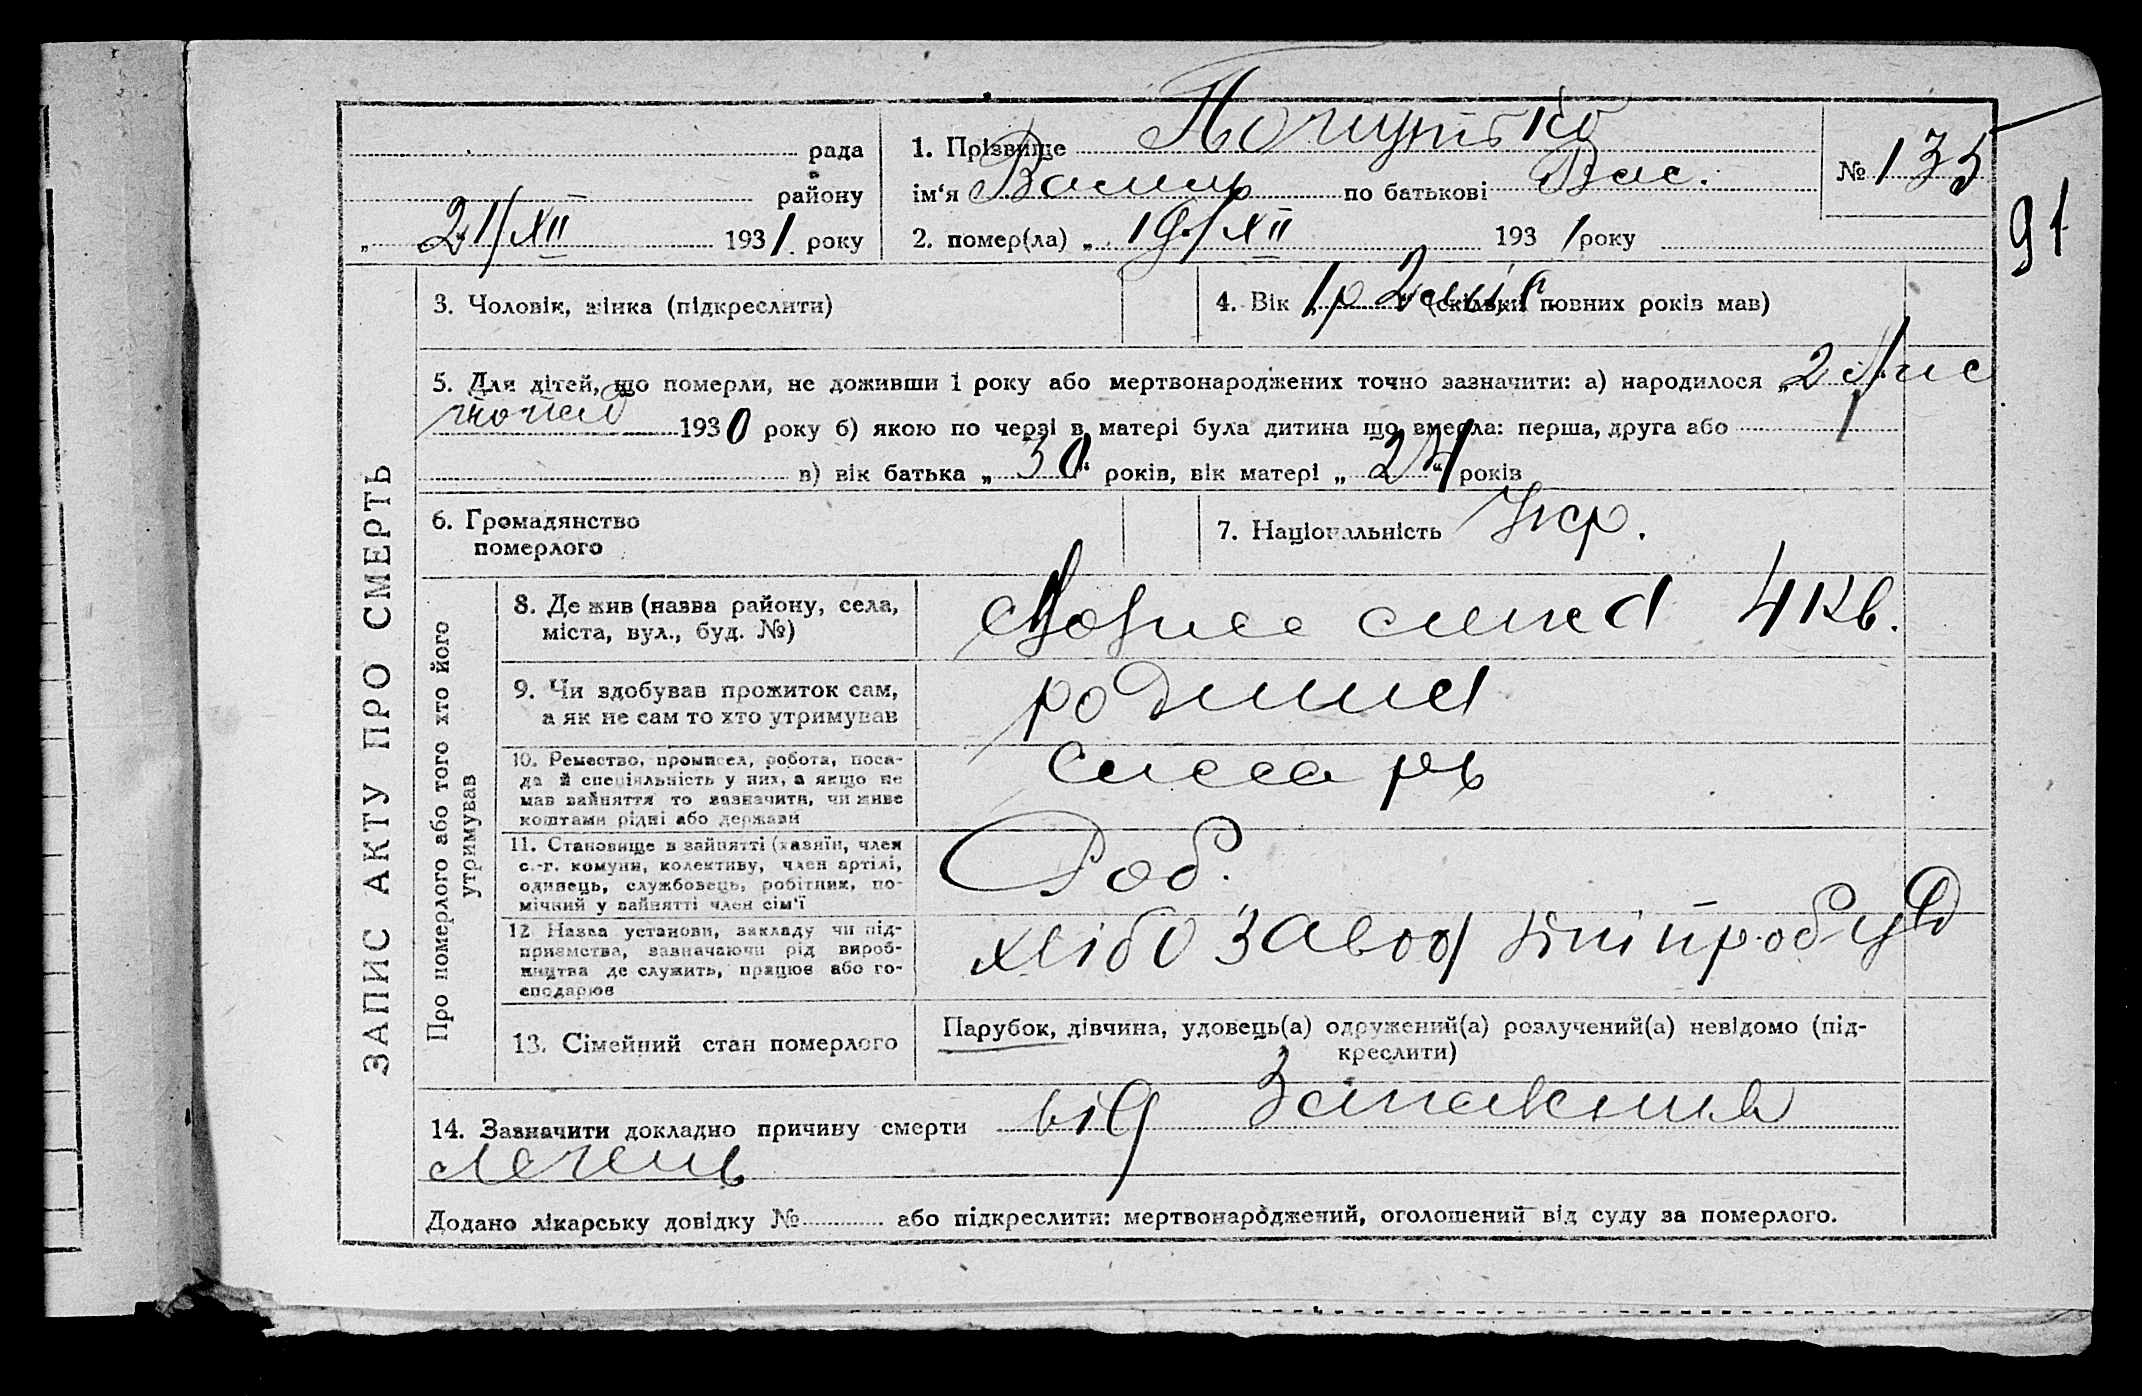 рада
1. Прізвище
№ 135
району
ім'я по батькові Вас.
91
„ 21/XII 1931 року
2. помер(ла) „ 19/XII 1931 року
3. Чоловік, жінка (підкреслити)
4. Вік 1р 2 міс. (скільки повних років мав)
5. Для дітей, що померли, не доживши 1 року або мертвонароджених точно зазначити: а) народилося „ 2 лис
топад 1930 року б) якою по черзі в матері була дитина що вмерла: перша, друга або
в) вік батька „ 30 " років, вік матері „ 24 " років
6. Громадянство
померлого
7. Національність Укр.
ЗАПИС АКТУ ПРО СМЕРТЬ
Про померлого або того хто його
утримував
8. Де жив (назва району, села,
міста, вул., буд. №)
4 кв.
9. Чи здобував прожиток сам,
а як не сам то хто утримував
родина
10. Ремество, промисел, робота, поса-
да й спеціяльність у них, а якщо не
мав зайняття то зазначити, чи живе
коштами рідні або держави
слесарь
11. Становище в зайнятті (хазяїн, член
с.-г. комуни, колективу, член артілі,
одинець, службовець, робітник, по-
мічний у зайнятті член сім'ї
Роб.
12 Назва установи, закладу чи під-
приємства, зазначаючи рід вироб-
ництва де служить, працює або го-
сподарює
хлібозавод Дніпробуд
13. Сімейний стан померлого
Парубок, дівчина, удовець(а) одружений(а) розлучений(а) невідомо (під-
креслити)
14. Зазначити докладно причину смерти від Запалення
легень
Додано лікарську довідку № або підкреслити: мертвонароджений, оголошений від суду за померлого.